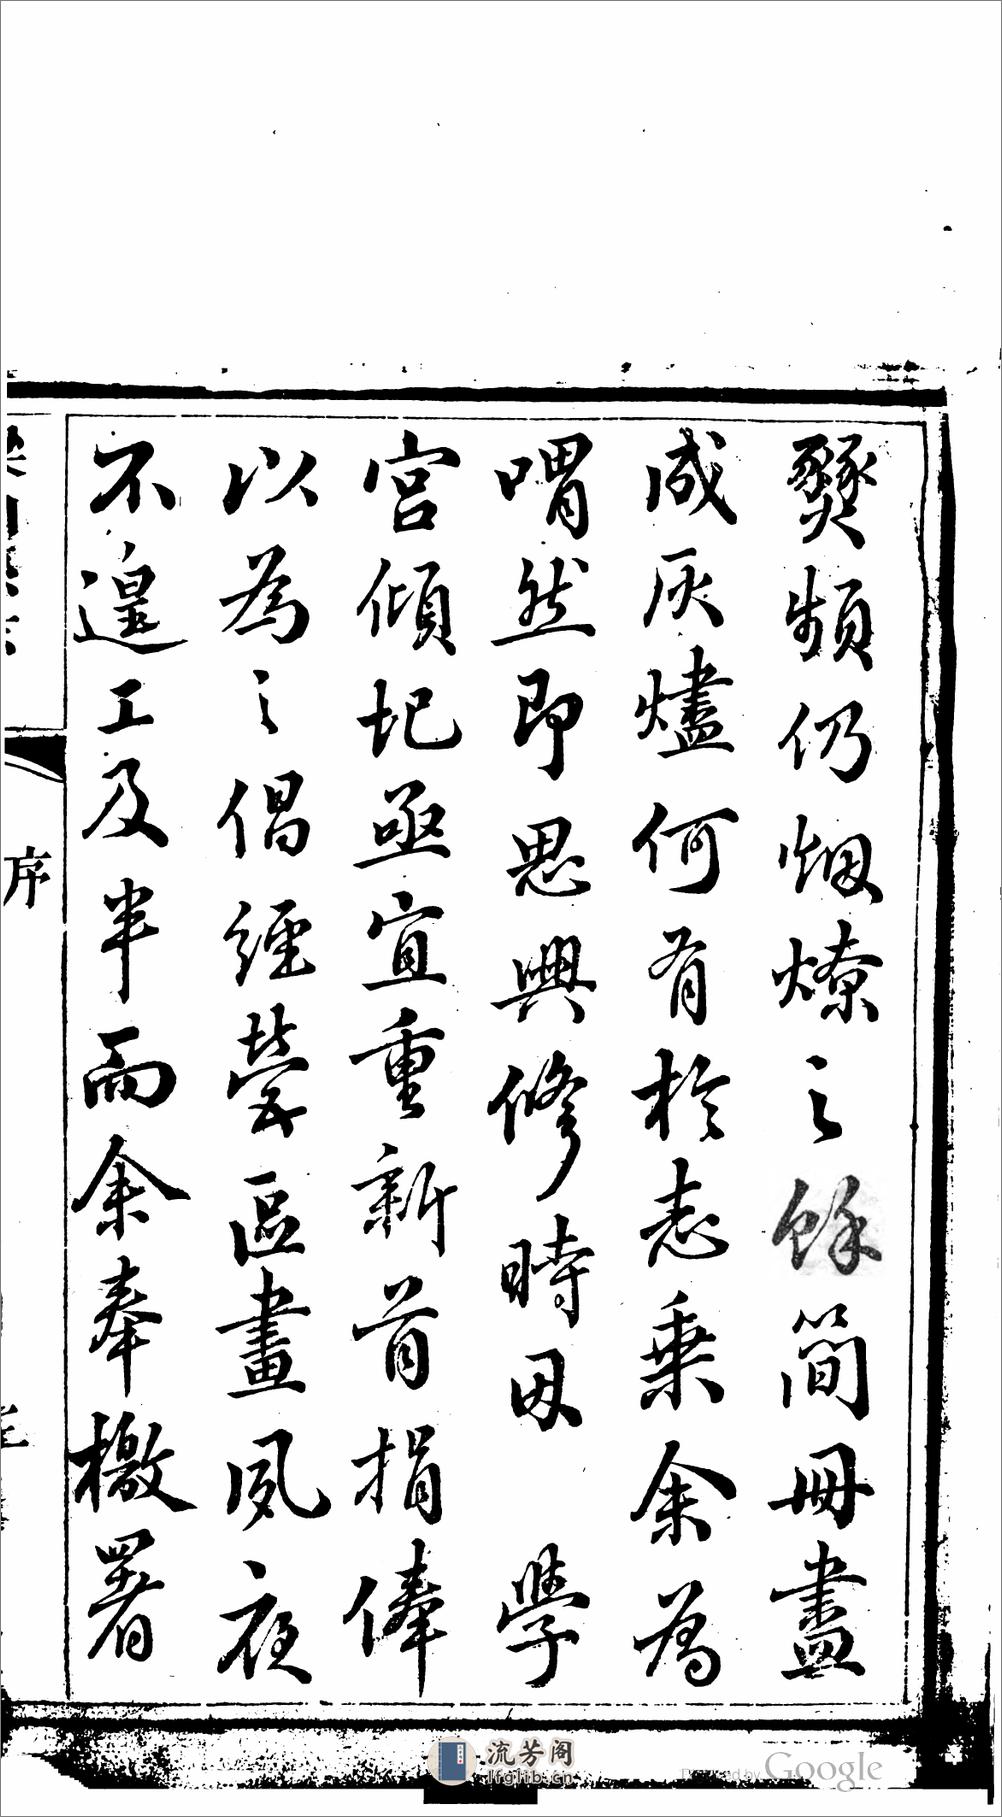 燹頻仍烟燎之餘簡冊盡
成灰燼何有於志乘余為
喟然即思興修時因　學
宮傾圮亟宜重新首捐俸
以為之倡經營區畫夙夜
不遑工及半而余奉檄署
序
流芳阁
lfglib.cn
Powered by Google